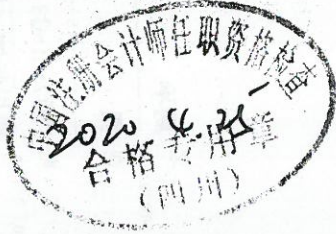 中国注册会计师任职资格检查
2020 4.25
合格专用章
(四川)